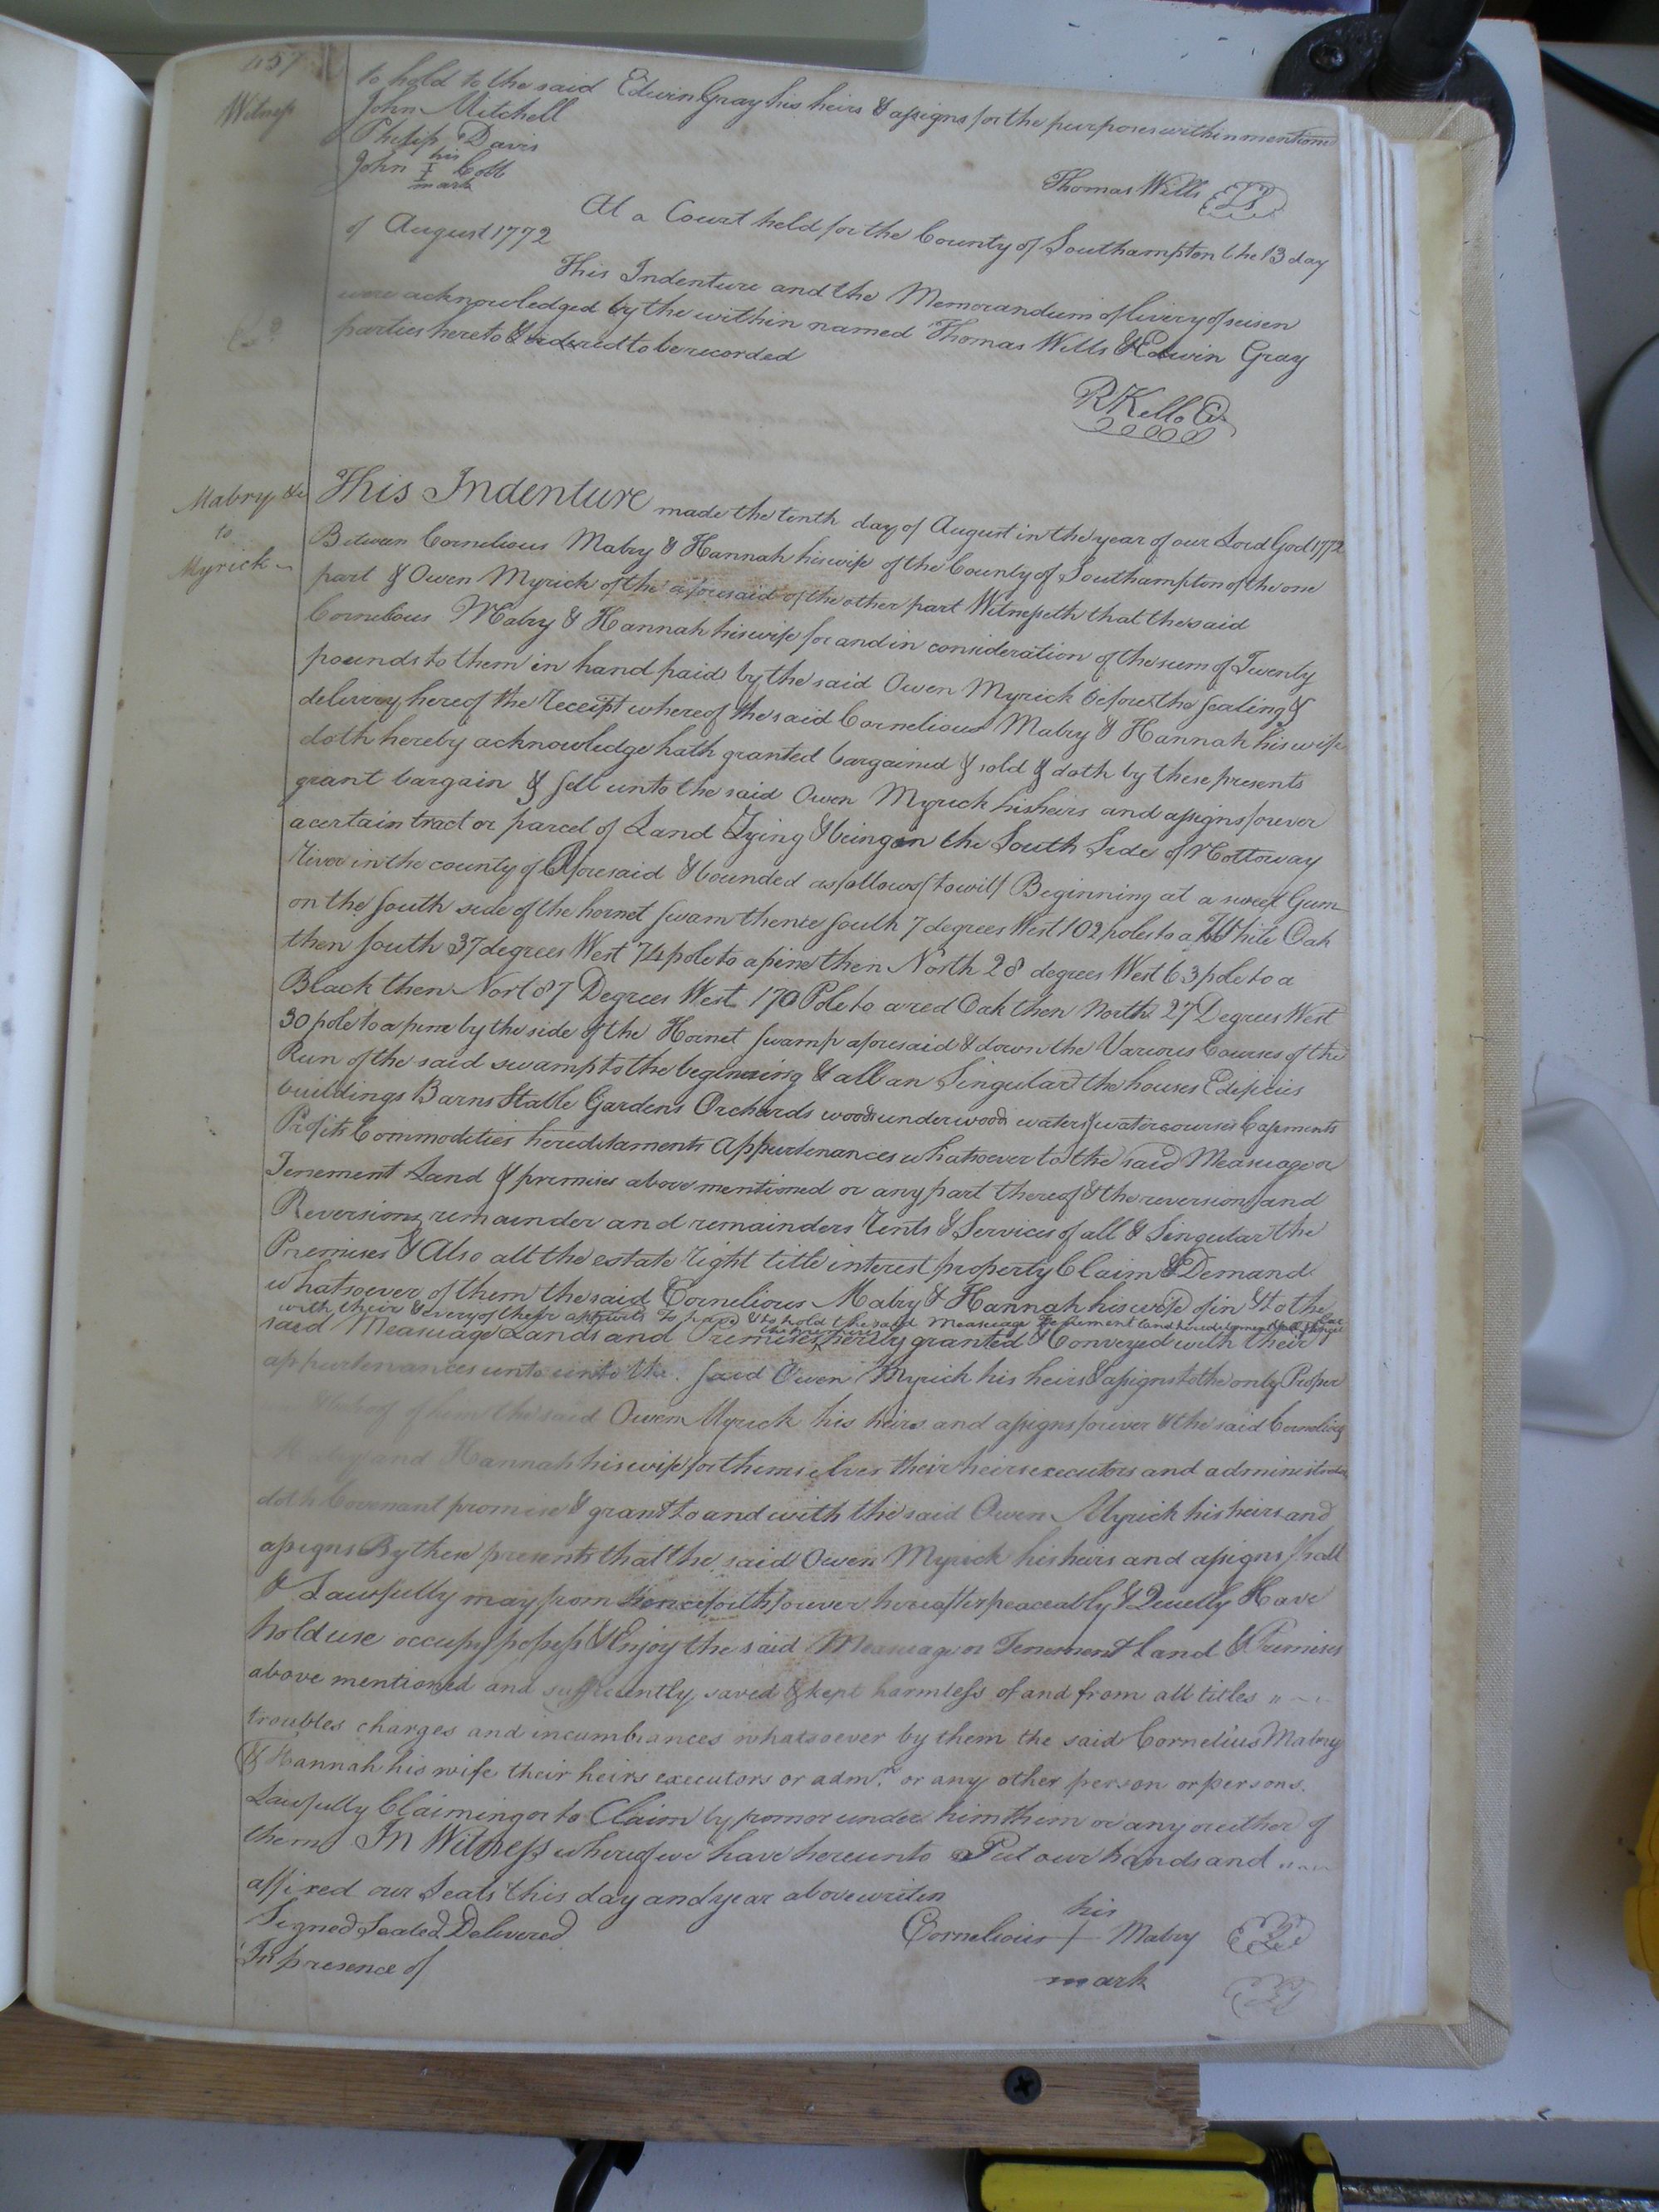 457
to hold to the said Edwin Gray his heirs & assigns for the purposes within mentiond
Witness
John Mitchell
Philip Davis
John his I mark Cobb
Thomas Wills LS
At a Court held for the County of Southampton the 13 day
of August 1772
This Indenture and the Memorandum of livery of seisen
were acknowledged by the within named Thomas Wills & Edwin Gray
parties hereto & ordered to be recorded
R Kello Cl
Mabry &c
to
Myrick
This Indenture made the tenth day of August in the year of our Lord God 1772
Between Cornelious Mabry & Hannah his wife of the County of Southampton of the one
part & Owen Myrick of the aforesaid of the other part Witnesseth that the said
Cornelious Mabry & Hannah his wife for and in consideration of the sum of Twenty
pounds to them in hand paid by the said Owen Myrick before the sealing &
delivery hereof the receipt whereof the said Cornelious Mabry & Hannah his wife
doth hereby acknowledge hath granted bargained & sold & doth by these presents
grant bargain & sell unto the said Owen Myrick his heirs and assigns forever
a certain tract or parcel of Land Lying & being on the South Side of Nottoway
River in the county of Aforesaid & bounded as follows (to wit) Beginning at a sweet Gum
on the south side of the hornet swam thence south 7 degrees West 102 poles to a White Oak
then south 37 degrees West 74 pole to a pine then North 28 degrees West 63 pole to a
Black then Nort 87 Degrees West 170 Pole to a red Oak then North 27 Degrees West
30 pole to a pine by the side of the Hornet swamp aforesaid & down the Various Courses of the
Run of the said swamp to the beginning & all an Singular the houses Edificies
buildings Barns Stable Gardens Orchards woods underwoods waters & watercourses Easments
Profits Commodities hereditaments Appurtenances whatsoever to the said Measuage or
Tenement Land & premises above mentioned or any part thereof & the reversion and
Reversions remainder and remainders rents & Services of all & Singular the
Premises & Also all the estate right title interest property Claim & Demand
whatsoever of them the said Cornelious Mabry & Hannah his wife of in & to the
with their & every of their To have & to hold the said Measuage Tenement Land
said Measuage Lands and Premises hereby granted & Conveyed with their
appurtenances unto unto the said Owen Myrick his heirs & assigns to the only Proper
& behoof of him the said Owen Myrick his heirs and assigns forever & the said Cornelious
Mabry and Hannah his wife for themselves their heirs executors and administrators
doth Covenant promise & grant to and with the said Owen Myrick his heirs and
assigns By these presents that the said Owen Myrick his heirs and assigns shall
& Lawfully may from henceforth forever hereafter peaceably & Quietly Have
hold use occupy possess & Enjoy the said Measuage or Tenement Land & Premises
above mentioned and sufficiently saved & kept harmless of and from all titles
troubles charges and incumbrances whatsoever by them the said Cornelius Mabry
& Hannah his wife their heirs executors or admrs or any other person or persons.
Lawfully Claiming or to Claim by from or under him them or any or either of
them In Witness whereof we have hereunto Put our hands and
affixed our Seals this day and year above writen
Signed Sealed Delivered
In presence of
his
Cornelious + Mabry LS
mark
LS